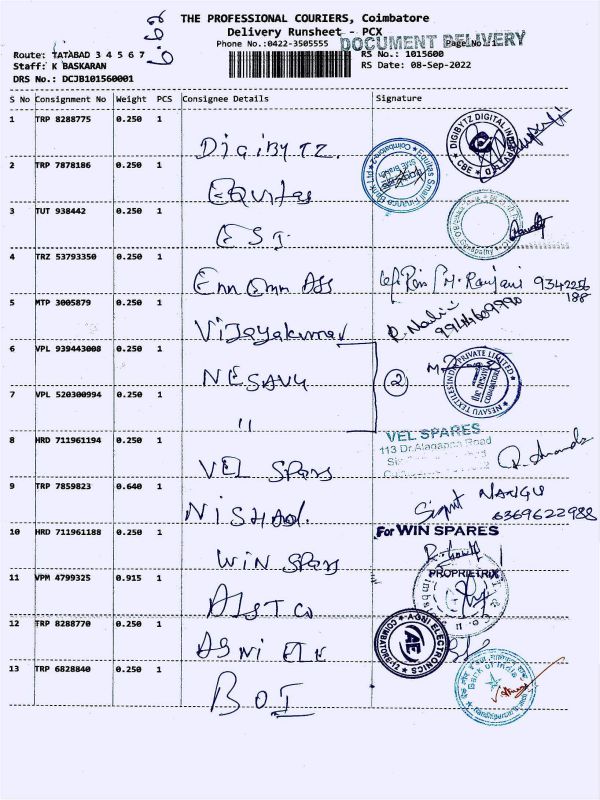 THE PROFESSIONAL COURIERS, Coimbatore
Delivery Runsheet - PCX
Phone No.:0422-3505555 Page No.:
DOCUMENT DELIVERY
Route: TATABAD 3 4 5 6 7 RS No.: 1015600
Staff: K BASKARAN RS Date: 08-Sep-2022
DRS No.: DCJB101560001
S No Consignment No Weight PCS Consignee Details Signature
1 TRP 8288775 0.250 1 DigiBytz.
DIGIBYTZ DIGITAL IND PVT LTD CBE
2 TRP 7878186 0.250 1 Equitas
Equitas Small Finance Bank Ltd Coimbatore-2
3 TUT 938442 0.250 1 ESI
4 TRZ 53793350 0.250 1 Enn Emm Ass M. Ranjani 9342256
188
5 MTP 3005879 0.250 1 Vijayakumar 9944609990
6 VPL 939443008 0.250 1 NESAVU
2
NESAVU TEXTILES INDIA PRIVATE LIMITED
7 VPL 520300994 0.250 1 "
8 HRD 711961194 0.250 1 VEL Spars
VEL SPARES
113 Dr.Alagappa Road
9 TRP 7859823 0.640 1 NiSHAd.
6369622988
10 HRD 711961188 0.250 1 WiN SPars
For WIN SPARES
PROPRIETRIX
11 VPM 4799325 0.915 1 AlSTCo
12 TRP 8288770 0.250 1 AGNi ELE
AGNI ELECTRONICS COIMBATORE-12
AE
13 TRP 6828840 0.250 1 BOI
Bank of India